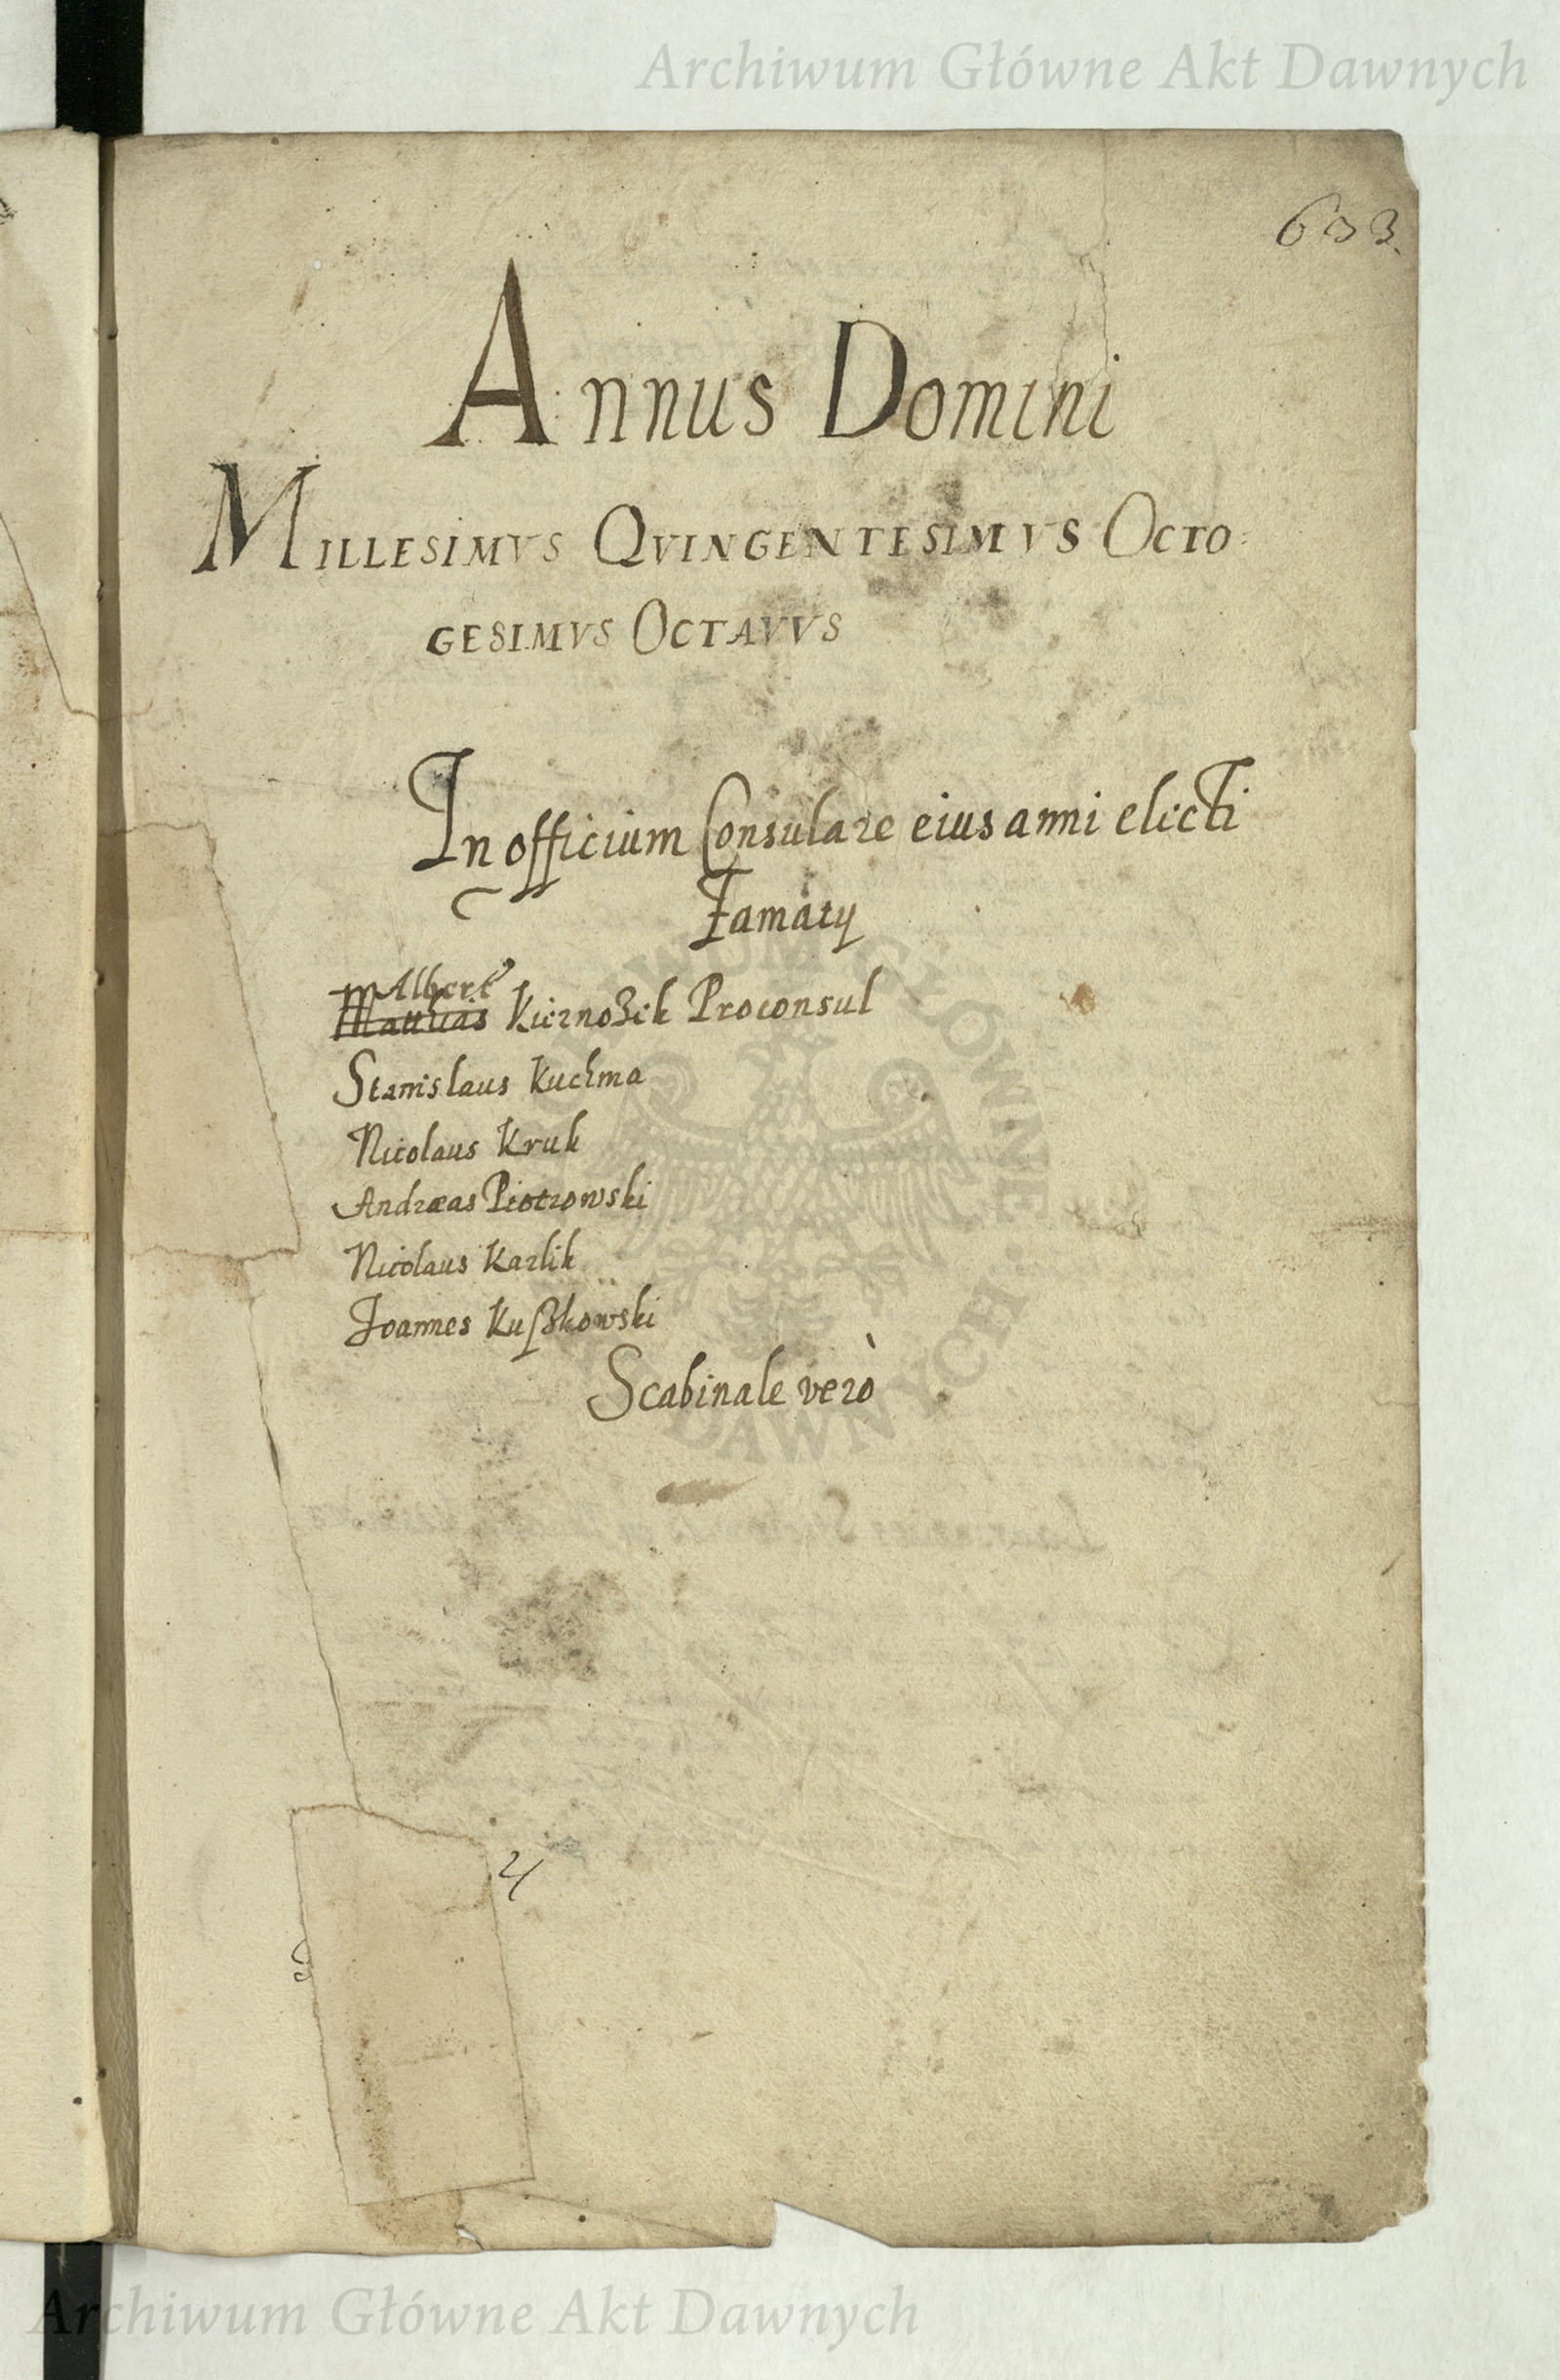 Archiwum Główne Akt Dawnych
633.
Annus Domini
MILLESIMVS QVINGENTESIMVS OCTO
GESIMVS OCTAVVS
In officium Consulare eius anni electi
Famaty
Albert9
Matthias Kiernozek Proconsul
Stanislaus Kuchma
Nicolaus Kruk
Andræas Piotrowski
Nicolaus Karlik
Joannes Kuszkowski
Scabinale verò
Archiwum Główne Akt Dawnych